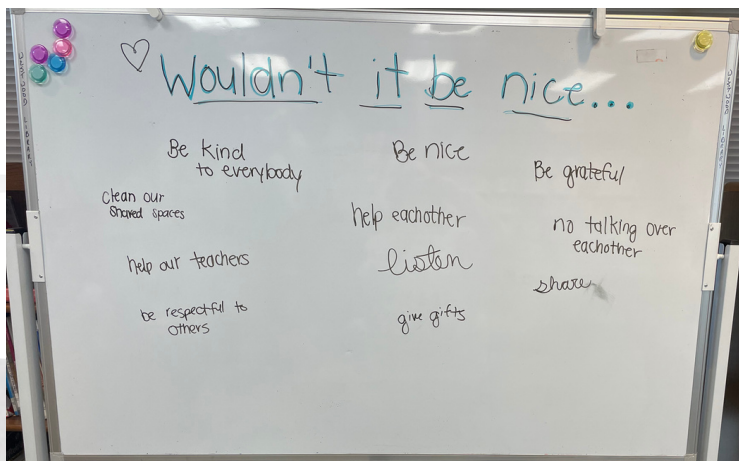 Wouldn't it be nice...
Be Kind
to everybody
clean our
Shared spaces
help our teachers
be respectful to
others
Be nice
help eachother
listen
give gifts
Be grateful
no talking over
eachother
share